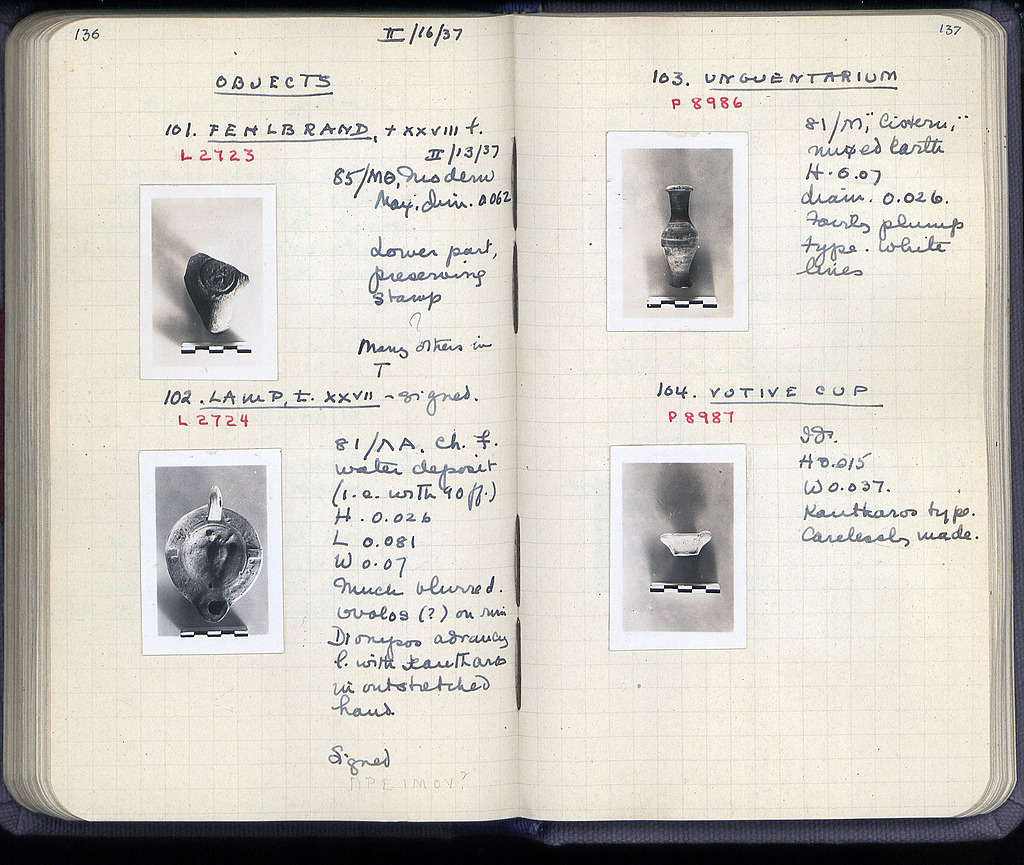 136
II/16/37
OBJECTS
101. FEHLBRAND, t XXVIII f.
L 2723
II/13/37
85/MΘ, Modern
Max. dim. 0.062
Lower part,
preserving
stamp
?
Many others in
T
102. LAMP, t. XXVII - signed.
L 2724
81/ΛA. Ch. f.
water deposit
(i.e. with 90 ff.)
H. 0.026
L 0.081
W 0.07
Much blurred.
Ovolos (?) on rim
Dionysos advancing
l. with kantharos
in outstretched
hand
Signed
ΠΡΕΙΜΟΥ?
137
103. UNGUENTARIUM
P 8986
81/Π, "Cistern,"
mixed earth
H. 0.07
diam. 0.026.
Fairly plump
type. White
lines
104. VOTIVE CUP
P 8987
Id.
H 0.015
W 0.037.
Kantharos type.
Carelessly made.